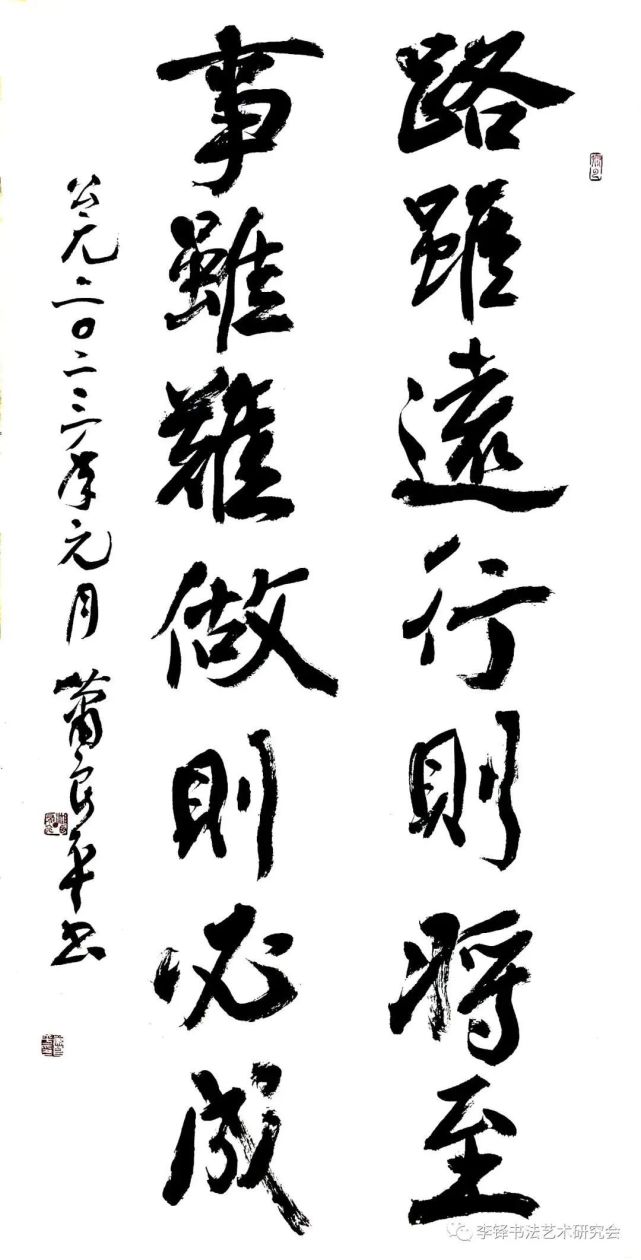 路雖遠行則將至
事雖難做則必成
公元二〇二三年元月蕭良平书
李铎书法艺术研究会